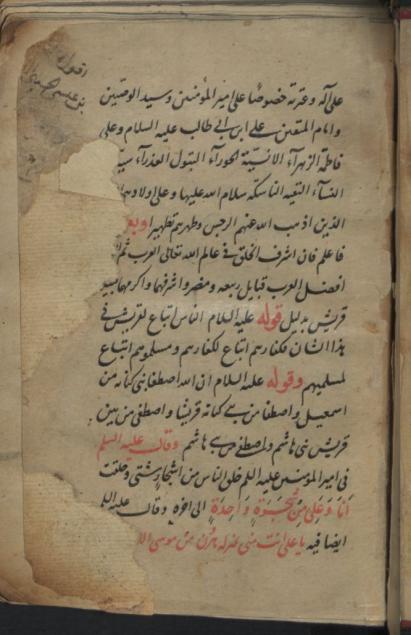 اقول
بن عيسى
على آله وعترته خصوصا على امير المؤمنين وسيد الوصيين
وامام المتقين على ابن ابى طالب عليه السلام وعلى
فاطمة الزهرآء الانسيّة الحورآء البتول العذرآء
النسآء التقيه الناسكه سلام الله عليها وعلى اولاد
الذين اذهب الله عنهم الرجس وطهرهم تطهيرا وبعد
فاعلم فان اشرف الخلق فى عالم الله تعالى العرب ثم
افضل العرب قبايل ربيعه ومضر واشرفها واكرمها
قريش بدليل قوله عليه السلام الناس اتباع لقريش فى
هذا الشان فكفارهم اتباع لكفارهم ومسلموهم اتباع
لمسليمهم وقوله عليه السلام ان الله اصطفا بنى كنانه من
اسمعيل واصطفا من بنى كنانه قريشا واصطفى من بين
قريش بنى هاشم واصطفى من بنى هاشم وقال عليه السلم
فى امير المؤمنين عليه السلم خلق الناس من اشجار شتى وخلقت
أنَا وَعَلى مِنْ شَجَرَةٍ وَاحِدَةٍ الى اخره وقال عليه
ايضا فيه يا على انت منى بمنزله هرون من موسى الا